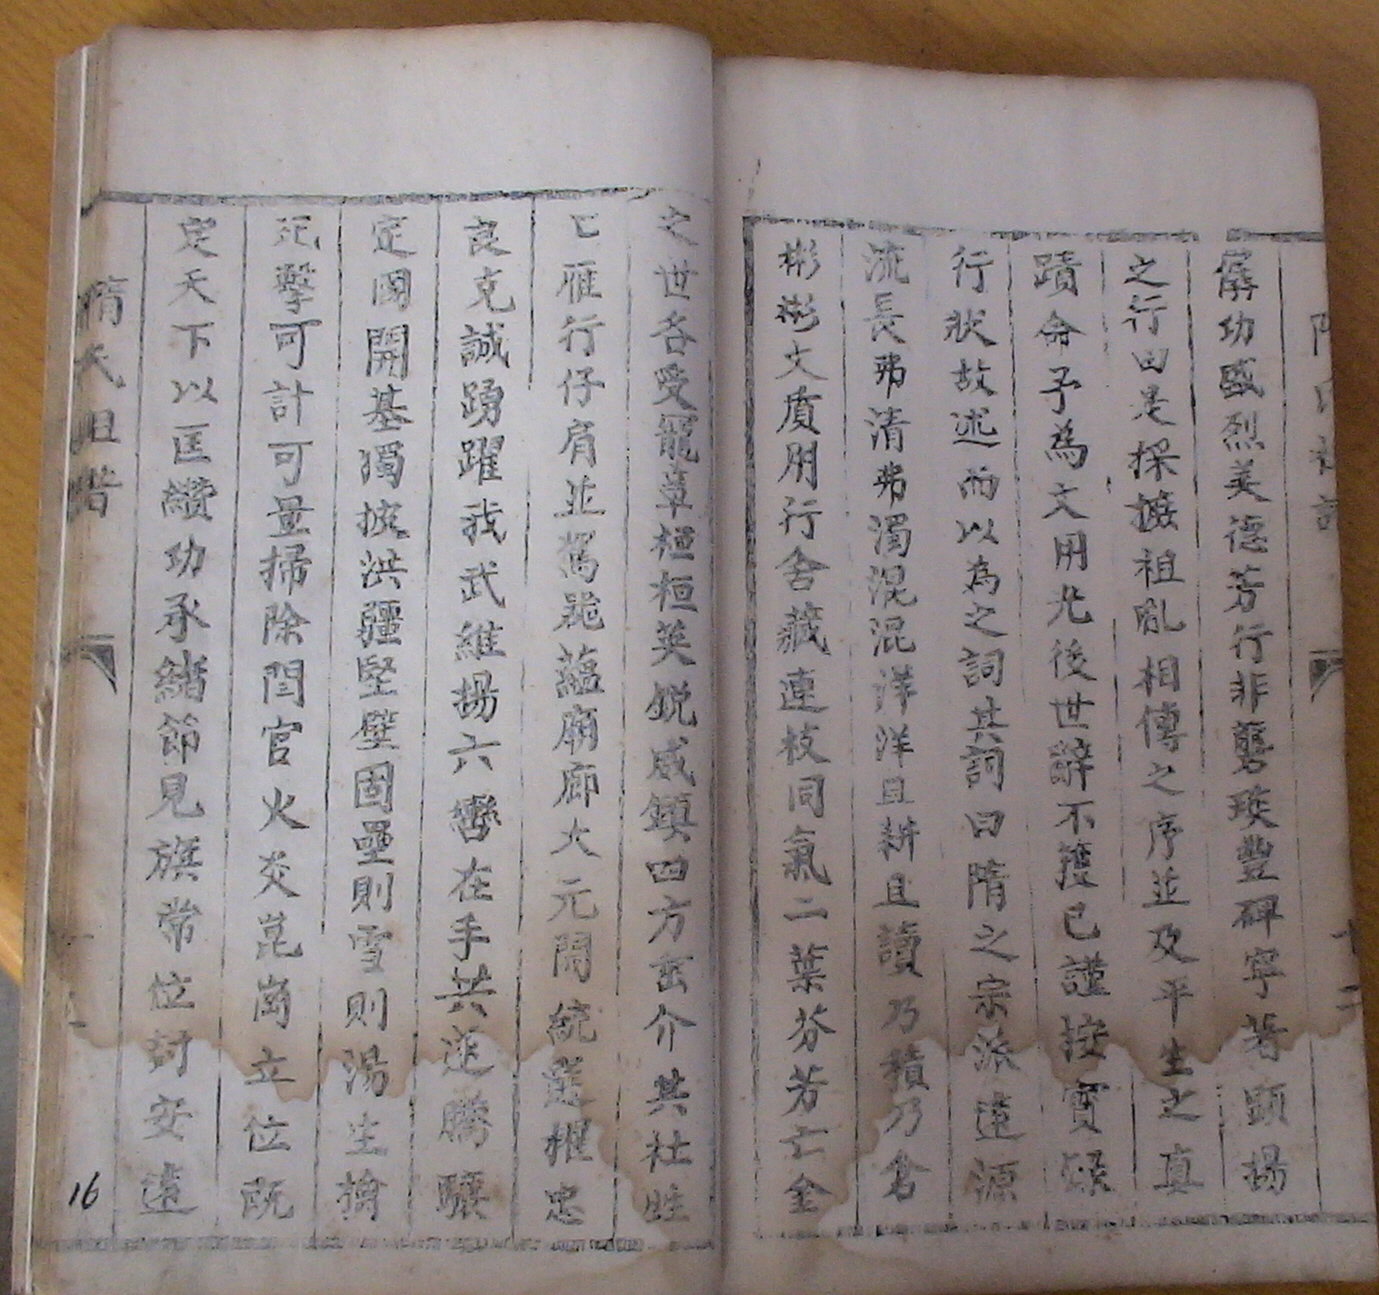 隋氏祖譜
十二
僝功盛烈美德芳行非鑿琰豐碑寧著顯揚
之行由是採摭祖乱相傳之序並及平生之真
蹟命予為文用光後世辭不獲已謹按實蹟
行狀故述而以為之詞其詞曰隋之宗派遠源
流長弗清弗濁混混洋洋且耕且讀乃積乃倉
彬彬文質用行舍藏連枝同氣二葉芬芳亡金
之世各受寵章桓桓英銳威鎮四方密介其社
亡雁行仔肩並駕蘊廟廊大元開統選擢忠
良克誠踴躍我武維揚六轡在手共進騰驤
定國開基獨擁洪疆堅壁固壘則雪則湯生擒
死擊可計可量掃除閏官火炎崑崗立位既
定天下以匡纘功承緒節見旗常位討安遠
隋氏祖譜
16